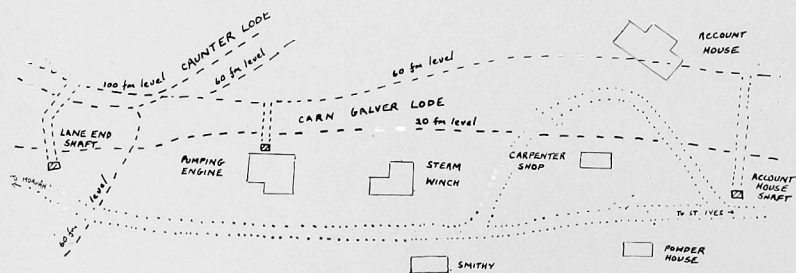 CAUNTER LODE
100 fm level
60 fm level
60 fm level
ACCOUNT
HOUSE
CARN GALVER LODE
20 fm level
LANE END
SHAFT
PUMPING
ENGINE
STEAM
WINCH
CARPENTER
SHOP
ACCOUNT
HOUSE
SHAFT
TO MORVAH
60 fm level
TO ST IVES →
SMITHY
POWDER
HOUSE